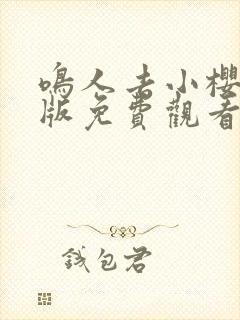 鳴人去小櫻
版免費觀看
錢包君